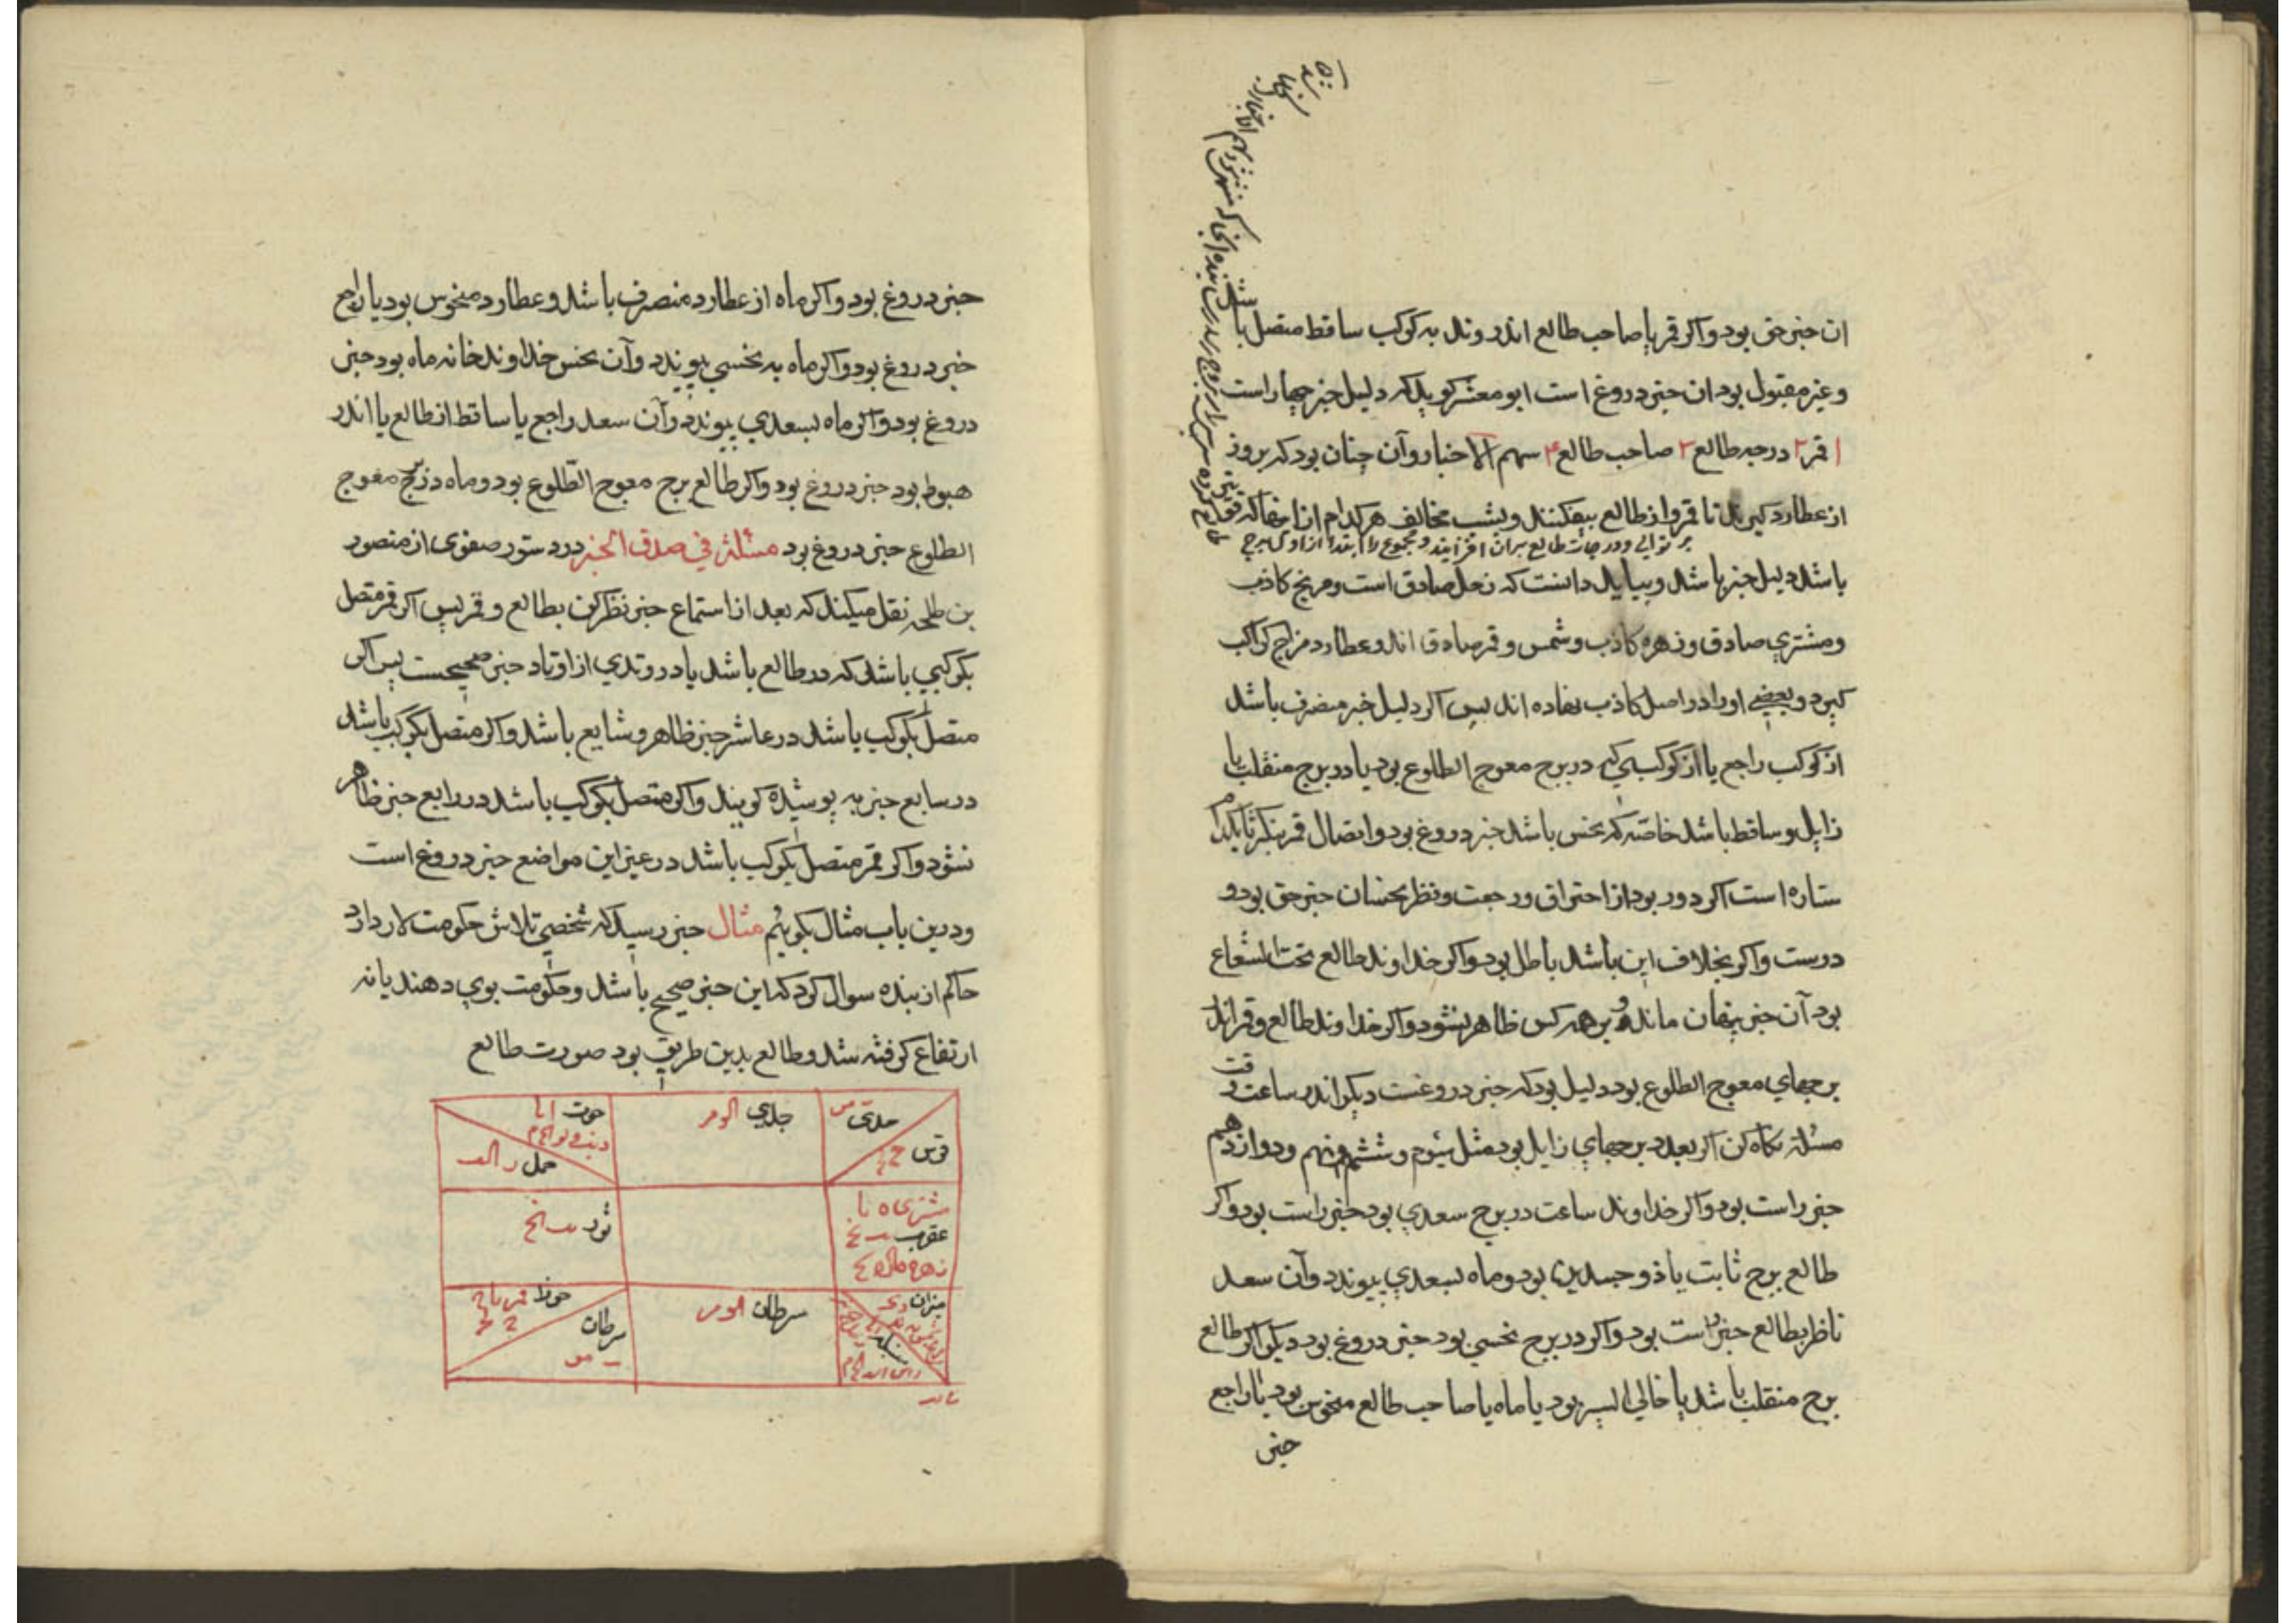 ان خبر حق بود و اکر قمر یا صاحب طالع اندر وتد به کوکب ساقط متصل باشد
و غیر مقبول بود ان خبر دروغ است ابو معشر کوید که دلیل خبر چهار است
۱ قمر ۲ درجه طالع ۳ صاحب طالع ۴ سهم الاخبار و آن چنان بود که بروز
از عطارد کیرند تا قمر و از طالع بیفکنند و بشب مخالف هر کدام از اینها که قوی
بر توالی و درجات طالع بران افزایند و مجموع را ابتدا از اول برج
باشد دلیل خبر باشد و بباید دانست که زحل صادق است و مریخ کاذب
و مشتری صادق و زهره کاذب و شمس و قمر صادق اند و عطارد مزاج کواکب
کیرد و بعضی او را در اصل کاذب نهاده اند پس اکر دلیل خبر منصرف باشد
از کوکب راجع یا از کوکبی که در برج معوج الطلوع بود یا در برج منقلب یا
زایل و ساقط باشد خاصّه که نحس باشد خبر دروغ بود و اتصال قمر بنکر تا بکدام
ستاره است اکر دور بود از احتراق و رجعت و نظر نحسان خبر حق بود و
درست و اکر بخلاف این باشد باطل بود و اکر خداوند طالع تحت الشعاع
بود آن خبر پنهان ماند و بر هر کس ظاهر نشود و اکر خداوند طالع و قمر اندر
برجهای معوج الطلوع بود دلیل بود که خبر دروغست دیکر اندر ساعت وقت
مسئله نکاه کن اکر بعدد برجهای زایل بود مثل سیّوم و ششم و نهم و دوازدهم
خبر راست بود و اکر خداوند ساعت در برج سعدی بود خبر راست بود و اکر
طالع برج ثابت یا ذو جسدین بود و ماه بسعدی پیوندد و آن سعد
ناظر بطالع خبر راست بود و اکر در برج نحسی بود خبر دروغ بود دیکر اکر طالع
برج منقلب باشد یا خالی السیر بود یا ماه یا صاحب طالع منحوس بود یا راجع
خبر
خبر دروغ بود و اکر ماه از عطارد منصرف باشد و عطارد منحوس بود یا راجع
خبر دروغ بود و اکر ماه به نحسی پیوندد و آن نحس خداوند خانه ماه بود خبر
دروغ بود و اکر ماه بسعدی پیوندد و آن سعد راجع یا ساقط از طالع یا اندر
هبوط بود خبر دروغ بود و اکر طالع برج معوج الطّلوع بود و ماه در برج معوج
الطلوع خبر دروغ بود مسئلة فی صدق الخبر در دستور صفوی از منصور
بن طلحه نقل میکند که بعد از استماع خبر نظر کن بطالع و قمر پس اکر قمر متصل
بکوکبی باشد که در طالع باشد یا در وتدی از اوتاد خبر صحیحست پس اکر
متصل بکوکب باشد در عاشر خبر ظاهر و شایع باشد و اکر متصل بکوکب باشد
در سابع خبر به پوشیده کویند و اکر متصل بکوکب باشد در رابع خبر ظاهر
نشود و اکر قمر متصل بکوکب باشد در غیر این مواضع خبر دروغ است
و درین باب مثال بکویُم مثال خبر رسید که شخصی تلاش حکومت لار دارد
حاکم از بنده سوال کرد که این خبر صحیح باشد و حکومت بوی دهند یا نه
ارتفاع کرفته شد و طالع بدین طریق بود صورت طالع
جدی
قوس
جدی
حوت
حمل
مشتری
عقرب
زهره
ثور
میزان
سنبله
راس
سرطان
جوزا
سرطان